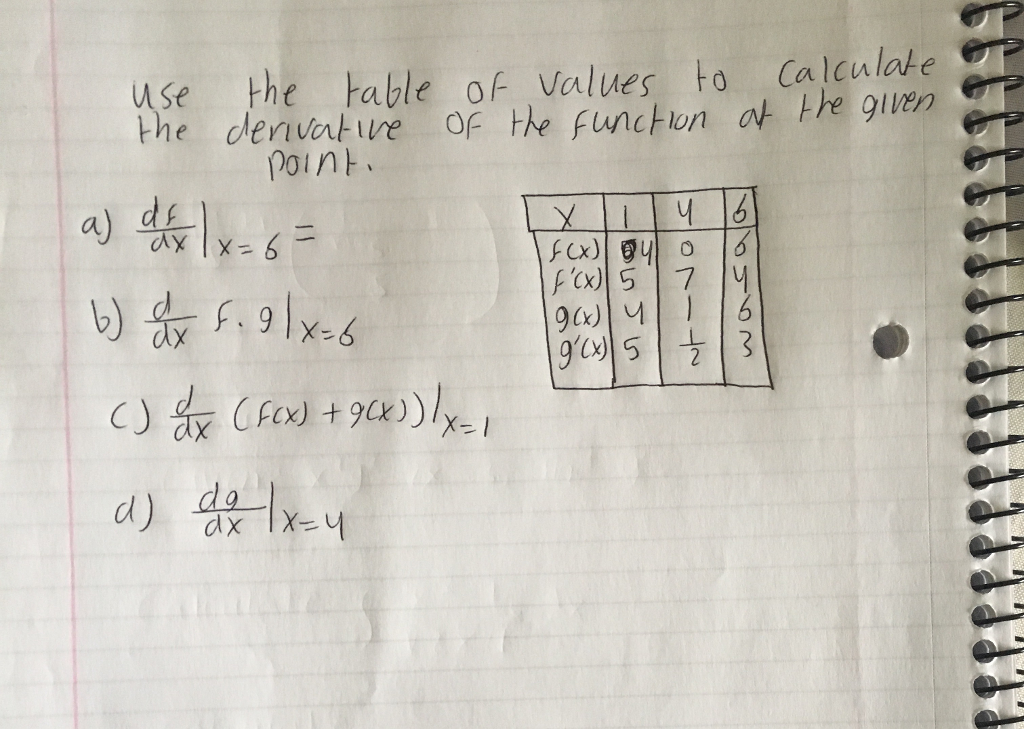 use the table of values to calculate
the derivative of the function at the given
point.
a) df/dx |x=6 =
b) d/dx f·g |x=6
c) d/dx (f(x) + g(x)) |x=1
d) dg/dx |x=4
x | 1 | 4 | 6
f(x) | 4 | 0 | 6
f'(x) | 5 | 7 | 4
g(x) | 4 | 1 | 6
g'(x) | 5 | 1/2 | 3